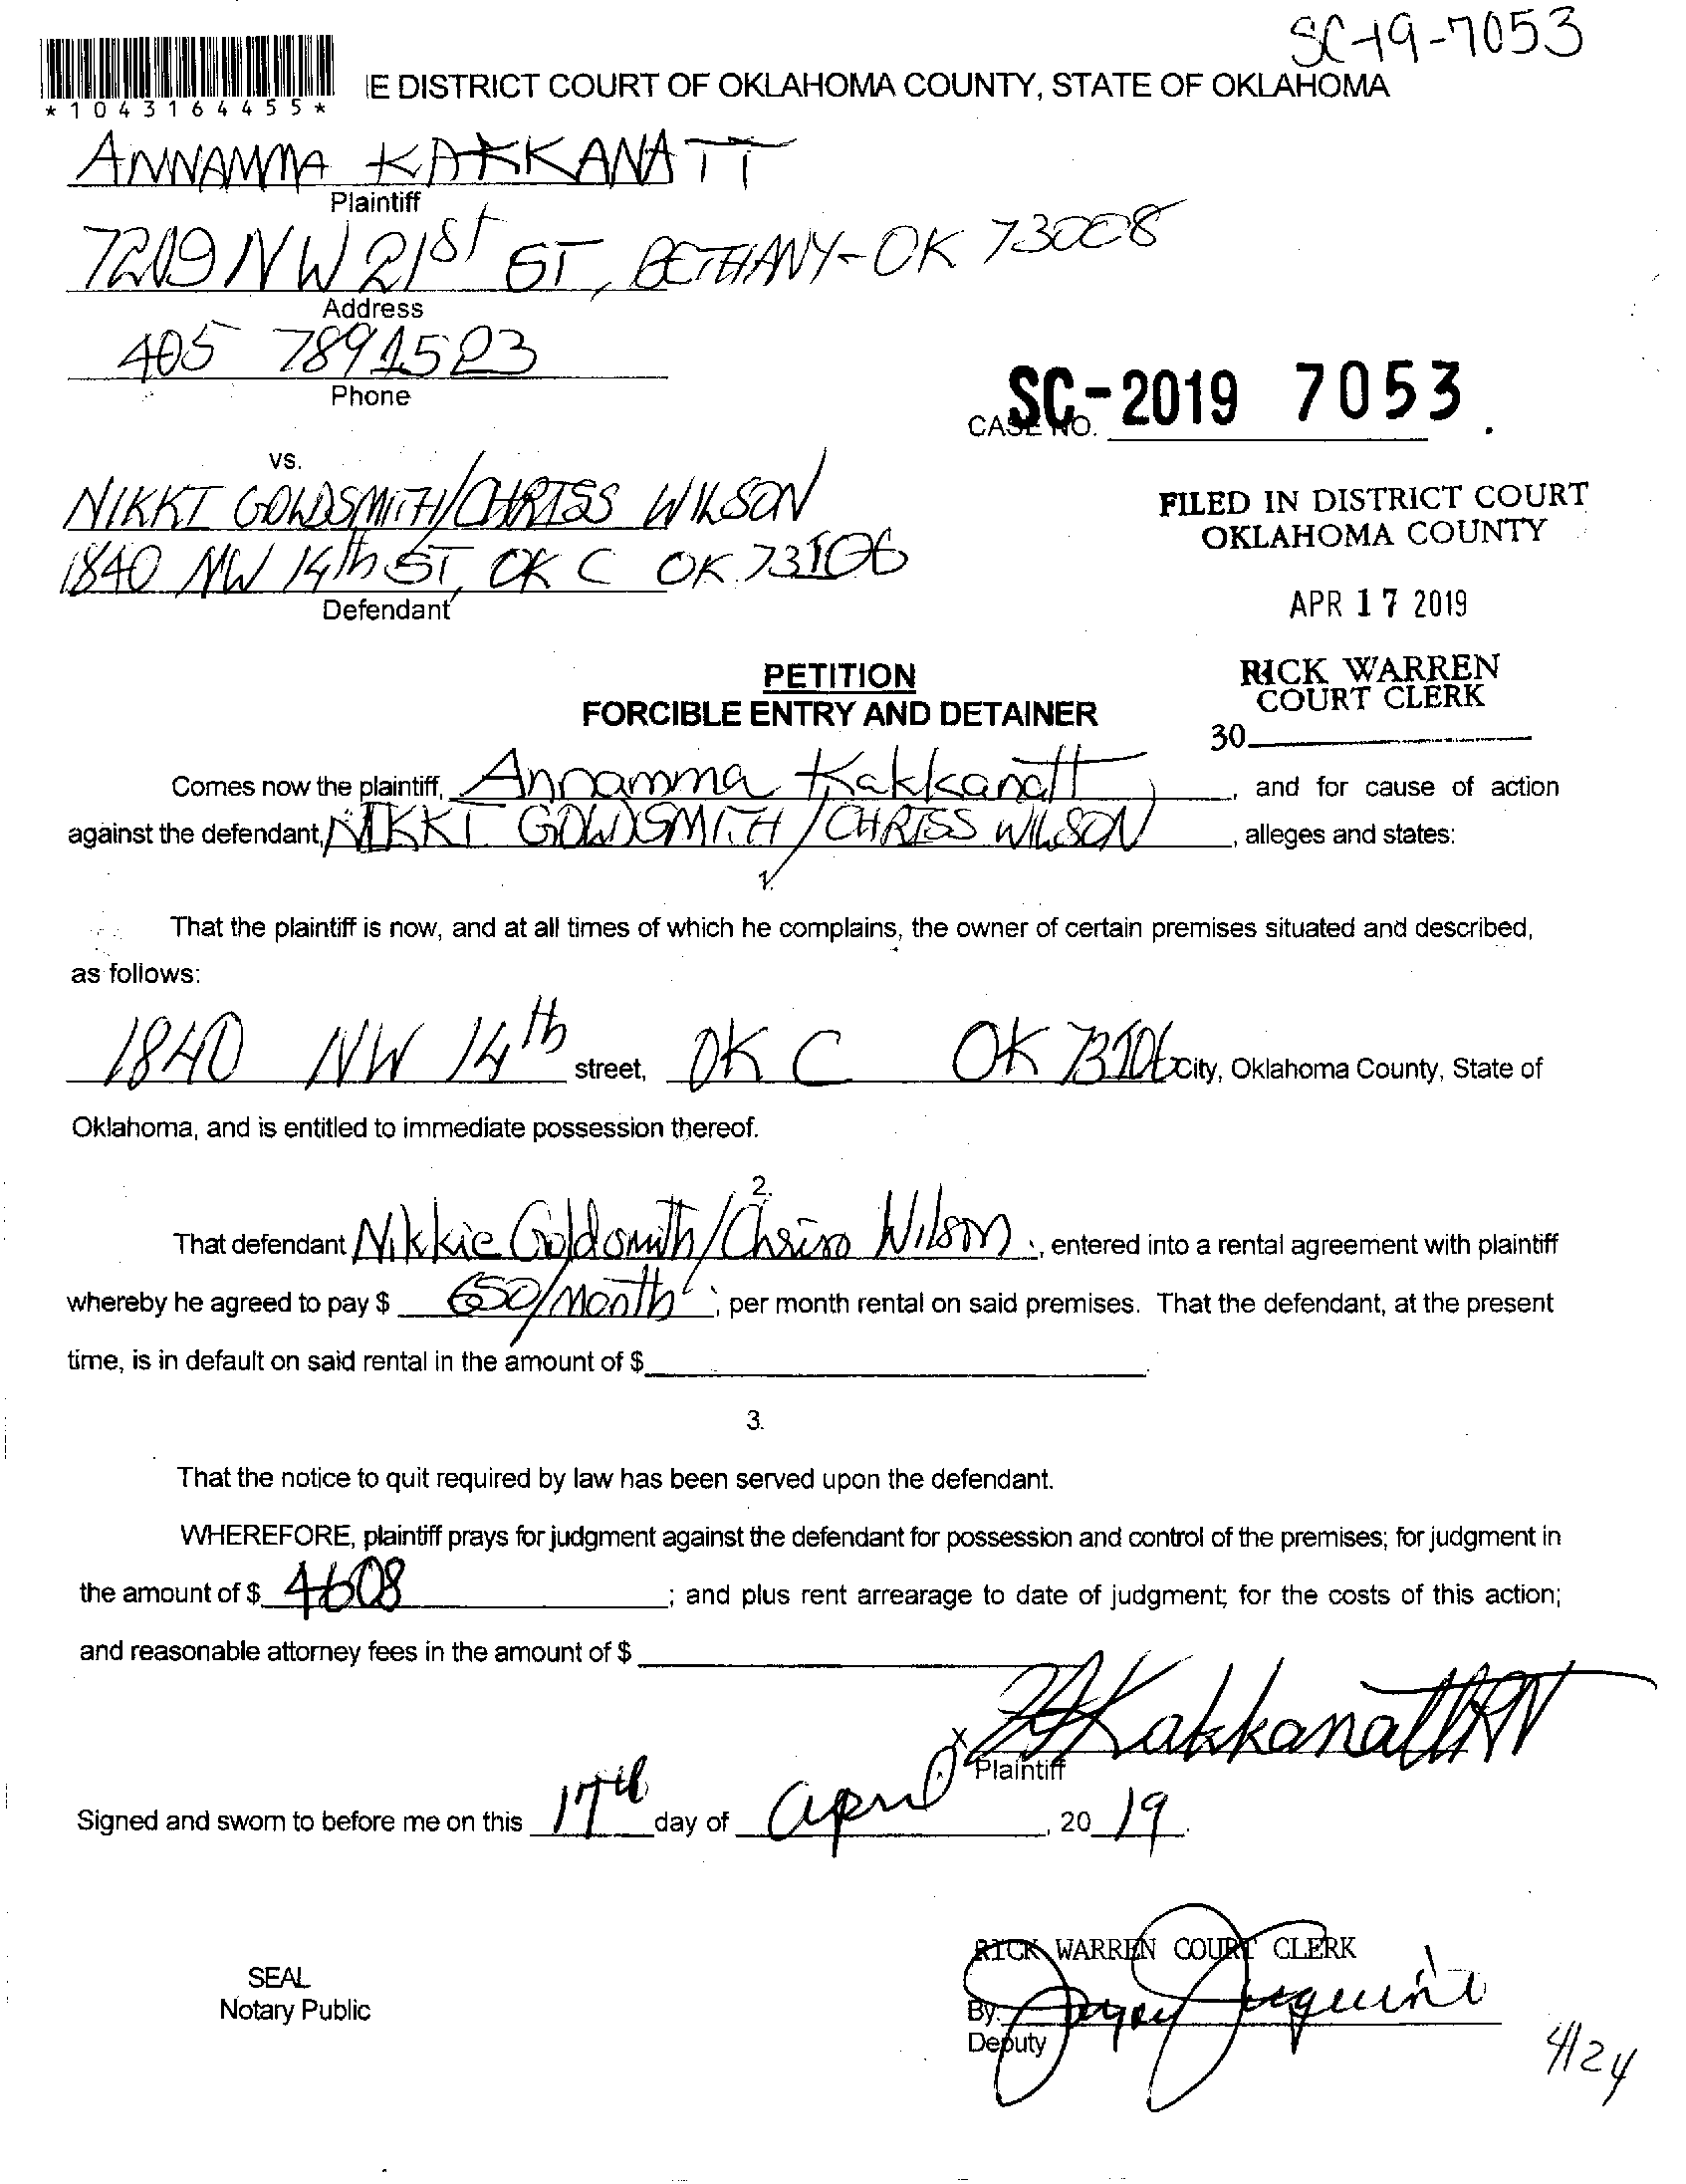 SC-19-7053
*1043164455*
E DISTRICT COURT OF OKLAHOMA COUNTY, STATE OF OKLAHOMA
ANNAMMA KAKKANATT
Plaintiff
7209 NW 21st ST, BETHANY-OK 73008
Address
405 7891523
Phone
CASE NO. SC-2019 7053.
vs.
NIKKI GOLDSMITH/CHRISS WILSON
1840 NW 14th ST, OKC OK 73106
Defendant
FILED IN DISTRICT COURT
OKLAHOMA COUNTY
APR 17 2019
RICK WARREN
COURT CLERK
30
PETITION
FORCIBLE ENTRY AND DETAINER
Comes now the plaintiff, Annamma Kakkanatt, and for cause of action
against the defendant, NIKKI GOLDSMITH/CHRISS WILSON, alleges and states:
1.
That the plaintiff is now, and at all times of which he complains, the owner of certain premises situated and described,
as follows:
1840 NW 14th street, OKC OK 73106 City, Oklahoma County, State of
Oklahoma, and is entitled to immediate possession thereof.
2.
That defendant Nikkie Goldsmith/Chriss Wilson, entered into a rental agreement with plaintiff
whereby he agreed to pay $ 650/Month; per month rental on said premises. That the defendant, at the present
time, is in default on said rental in the amount of $ .
3.
That the notice to quit required by law has been served upon the defendant.
WHEREFORE, plaintiff prays for judgment against the defendant for possession and control of the premises; for judgment in
the amount of $ 4608; and plus rent arrearage to date of judgment; for the costs of this action;
and reasonable attorney fees in the amount of $
x AKakkanatt RN
Plaintiff
Signed and sworn to before me on this 17th day of April, 2019.
RICK WARREN COURT CLERK
SEAL
Notary Public
By:
Deputy
4/24